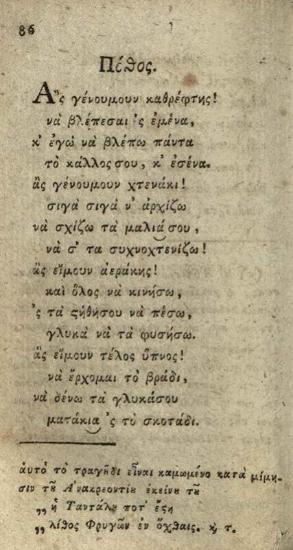 86
Πόθος.
Ἂς γένουμουν καθρέφτης!
νὰ βλέπεσαι 'ς ἐμένα,
κ' ἐγὼ νὰ βλέπω πάντα
τὸ κάλλος σου, κ' ἐσένα.
ἂς γένουμουν χτενάκι!
σιγὰ σιγὰ ν' ἀρχίζω
νὰ σχίζω τὰ μαλιά σου,
νὰ σ' τὰ συχνοχτενίζω!
ἂς εἴμουν ἀεράκης!
καὶ ὅλος νὰ κινήσω,
'ς τὰ ϛήθησου νὰ πέσω,
γλυκὰ νὰ τὰ φυσήσω.
ἂς εἴμουν τέλος ὕπνος!
νὰ ἔρχομαι τὸ βράδι,
νὰ δένω τὰ γλυκάσου
ματάκια 'ς τὸ σκοτάδι.
αὐτὸ τὸ τραγȣ́δι εἶναι καμωμένο κατὰ μίμη-
σιν τȣ͂ Ἀνακρέοντος ἐκείνȣ τȣ͂
„ ἡ Ταντάλȣ ποτ' ἔϛη
„ λίθος Φρυγῶν ἐν ὄχθαις. κ, τ.